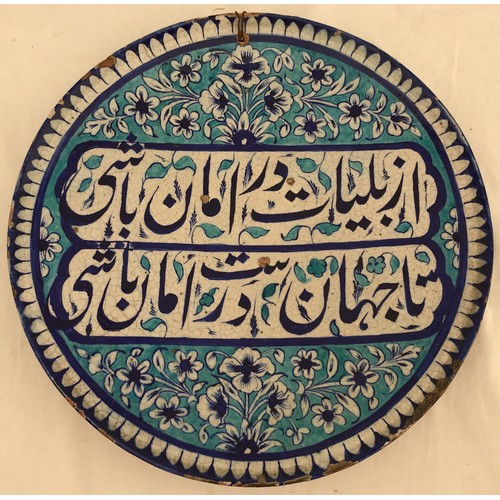 از بلیات در امان باشی
تا جهان است در امان باشی